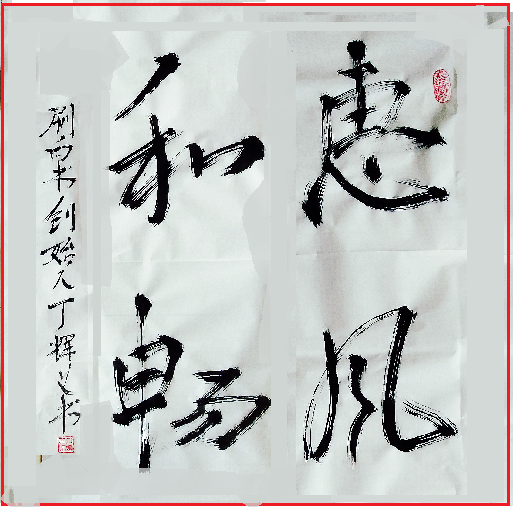 惠风
和畅
刷字术创始人丁辉之书